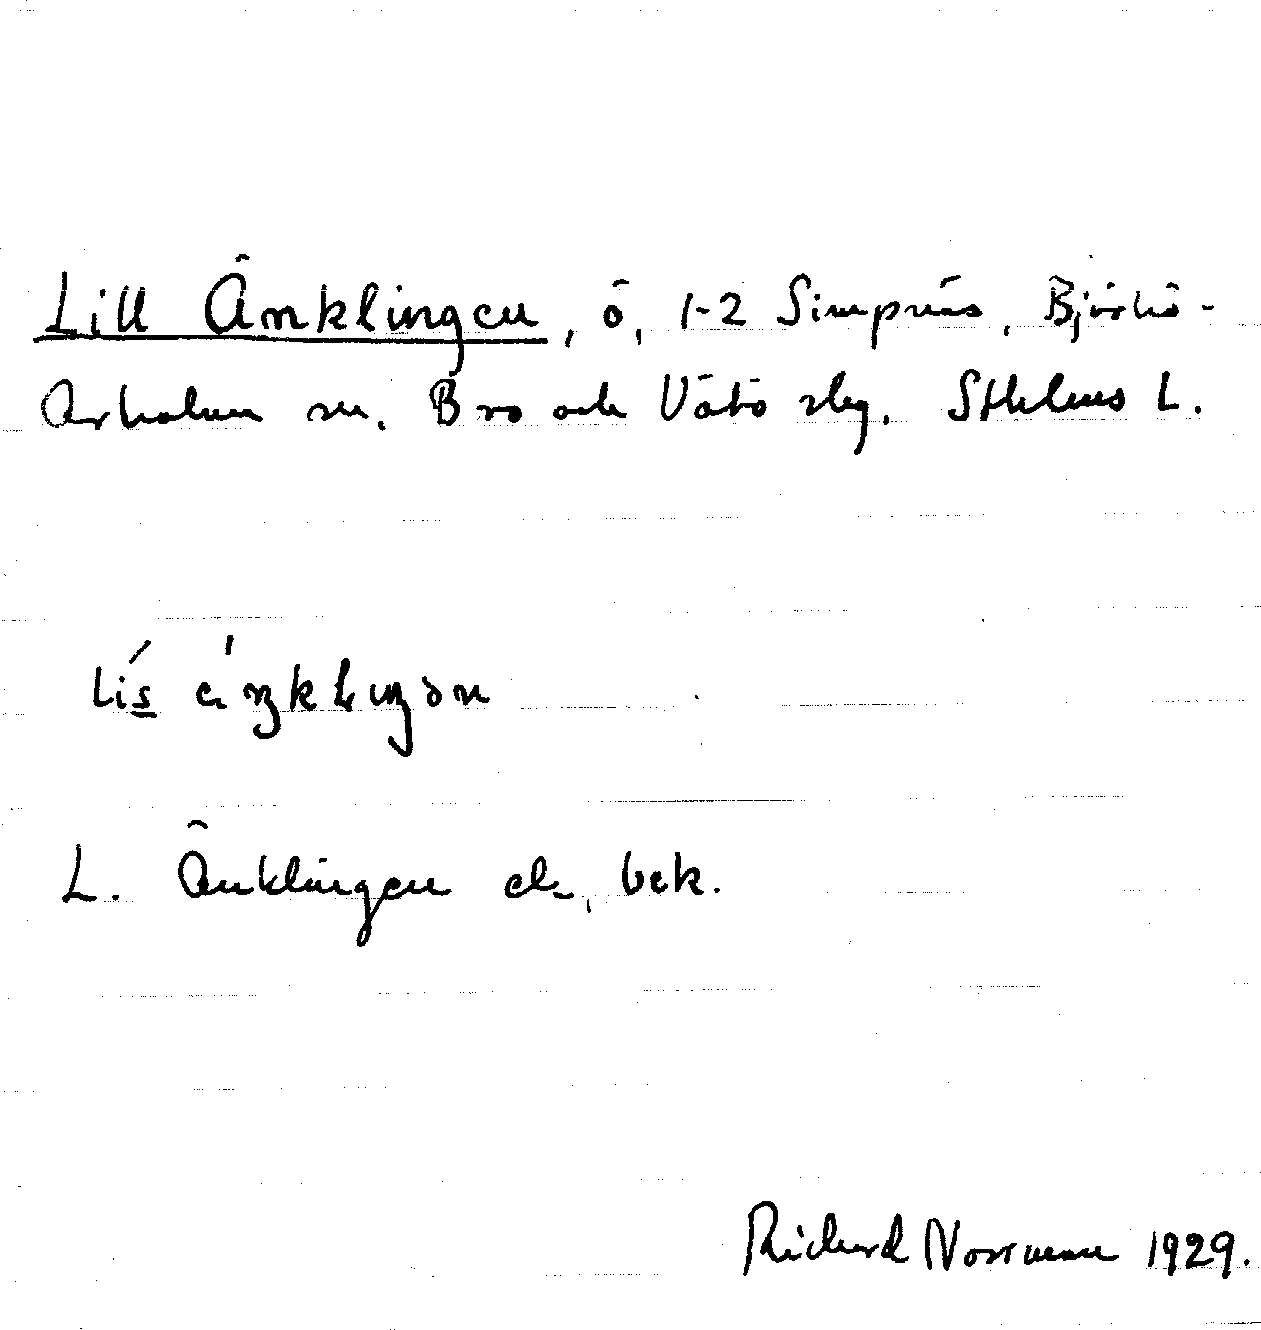 Lill Änklingen, ö, 1-2 Simpnäs, Björkö-
Arholma sn. Bro och Vätö slg. Sthlms L.
L. Änklingen ek, bek.
Richard Norrman 1929.